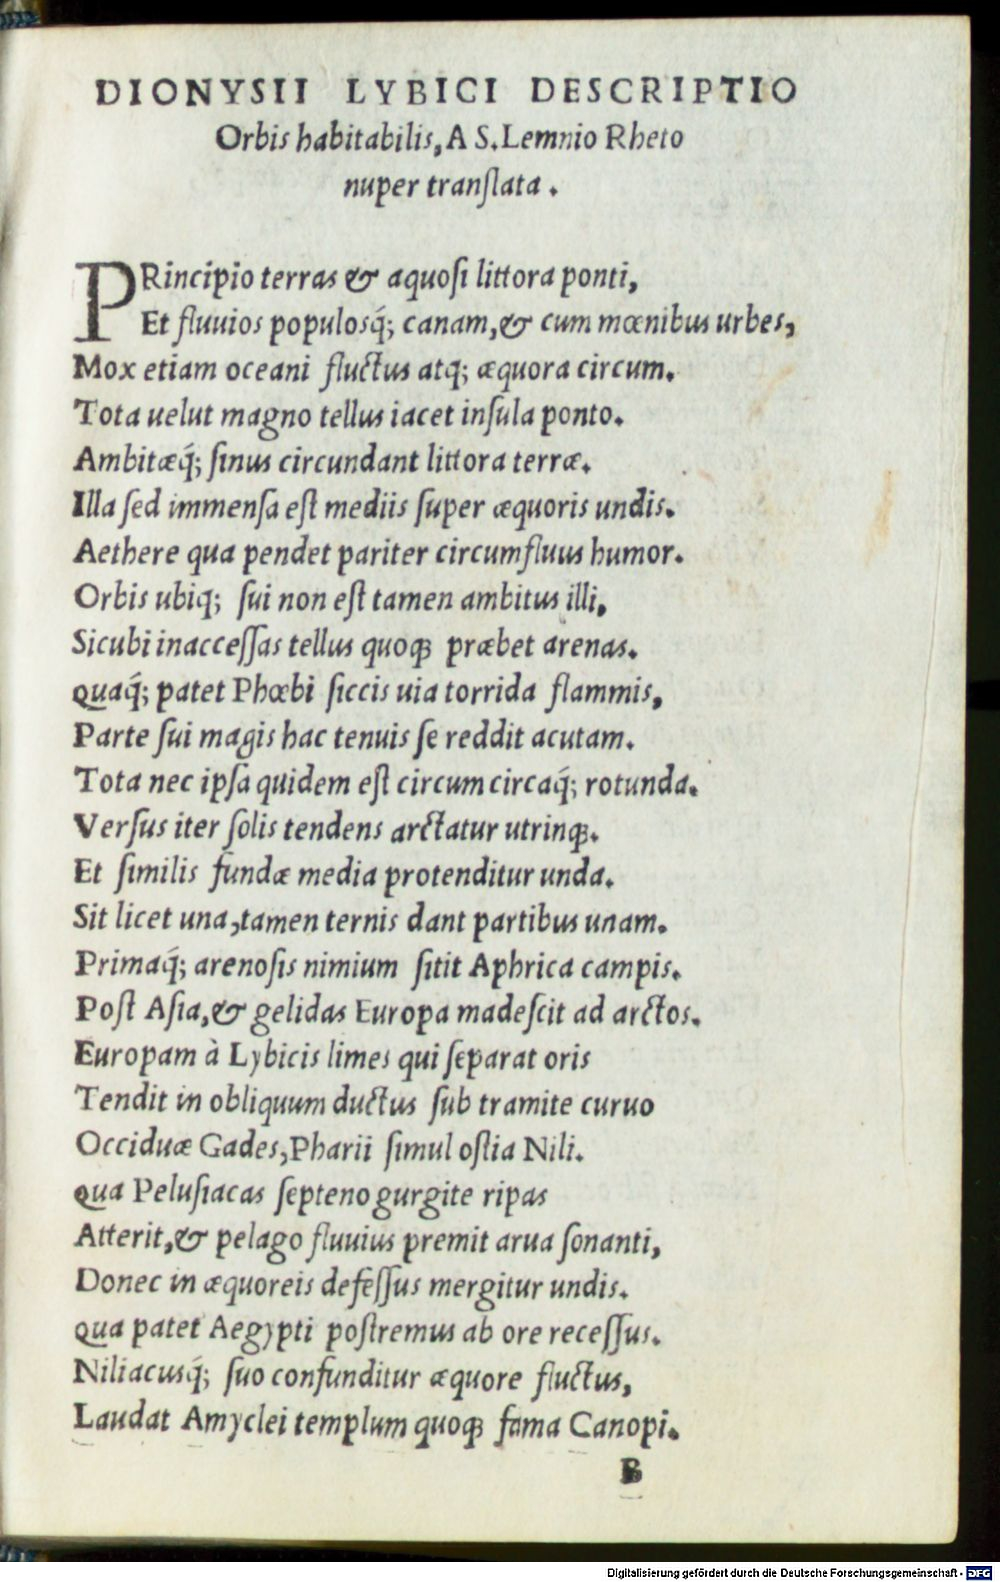 DIONYSII LYBICI DESCRIPTIO
Orbis habitabilis, A S. Lemnio Rheto
nuper translata.
PRincipio terras & aquosi littora ponti,
Et fluuios populosq́; canam, & cum mœnibus urbes,
Mox etiam oceani fluctus atq; æquora circum.
Tota uelut magno tellus iacet insula ponto.
Ambitæq́; sinus circundant littora terræ.
Illa sed immensa est mediis super æquoris undis.
Aethere qua pendet pariter circumfluus humor.
Orbis ubiq; sui non est tamen ambitus illi,
Sicubi inaccessas tellus quoq; præbet arenas.
Quaq́; patet Phœbi siccis uia torrida flammis,
Parte sui magis hac tenuis se reddit acutam.
Tota nec ipsa quidem est circum circaq́; rotunda.
Versus iter solis tendens arctatur utrinq;.
Et similis fundæ media protenditur unda.
Sit licet una, tamen ternis dant partibus unam.
Primaq́; arenosis nimium sitit Aphrica campis.
Post Asia, & gelidas Europa madescit ad arctos.
Europam à Lybicis limes qui separat oris
Tendit in obliquum ductus sub tramite curuo
Occiduæ Gades, Pharii simul ostia Nili.
Qua Pelusiacas septeno gurgite ripas
Atterit, & pelago fluuius premit arua sonanti,
Donec in æquoreis defessus mergitur undis.
Qua patet Aegypti postremus ab ore recessus.
Niliacusq́; suo confunditur æquore fluctus,
Laudat Amyclei templum quoq; fama Canopi.
B
Digitalisierung gefördert durch die Deutsche Forschungsgemeinschaft - DFG